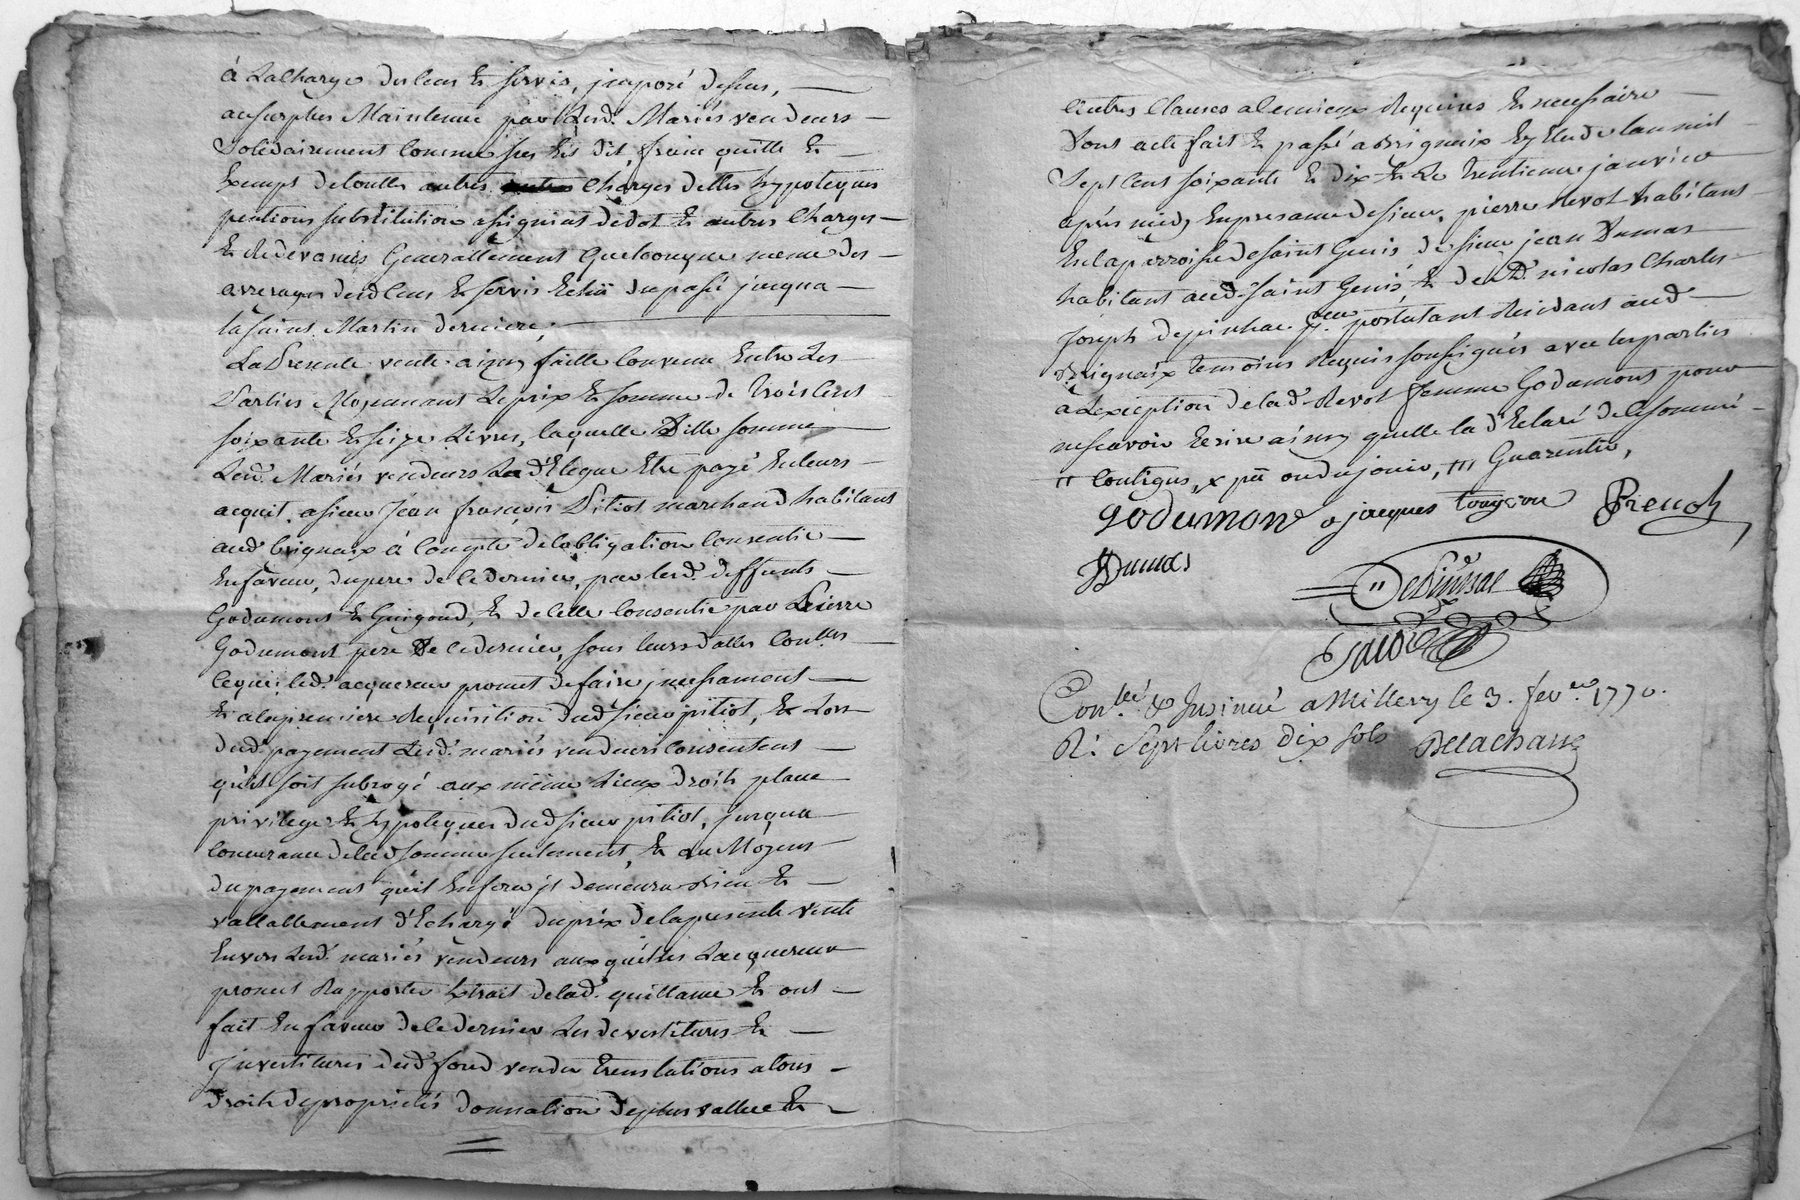 à La Charge du Cens et servis, jmposé dessus, —
au surplus Maintenue par Lesd. Mariés vendeurs —
Solidairement Comme sus Est dit, franc quitte Et —
Exempt detoutte autres Charges dettes hypoteques
pentions substitution assigniat dedot Et autres Charges —
Et Redevances Generallement Quelconque meme des —
arrerages desd Cens Et servis Echü du passé jusqua —
la saint Martin derniere, —
La Presente vente ainsy faitte Convenue Entre Les
Parties Moyennant Le prix Et somme de Trois Cens
soixante Et seize Livres, laquelle Ditte somme
Lesd. Mariés vendeurs La délégue Etre payé Enleurs
acquit a sieur Jean françois Pitiot marchand habitant
aud brignaix à Compte de lobligation Consentie —
Enfaveur, dupere de Ce dernier, par lesd. deffunts —
Godumont Et Guigond, Et de Celle Consentie par Pierre
Godumont pere De Ce dernier, sous leurs dattes Conttes
Ceque led. acquereur promet de faire jncessament —
Et alapremiere Requisition dud sieur pitiot, Et Lors
dud. payement Lesd. mariés vendeurs Consentent —
quil soit subrogé aux même Lieux droits place
privilege Et hypoteques dud sieur pitiot, jusqua
Concurance delad somme seulement, Et au Moyens
dupayement quil Enfera jl demeura bien Et —
vallablement dEchargé du prix delapresente vente
Envers Lesd. mariés vendeurs auxquelles Lacquereur
promet Rapporter Extrait delad. quittance Et ont —
fait En faveur de Ce dernier Les devestitures Et —
jnvestitures dud fond vendu Translations atous —
droits depropriétés donnation deplus vallue Et —
Autres Clauses alemieux Requises Et necessaire —
Dont acte fait Et passé a Brignaix En Etude Lan mil —
Sept Cent soixante Et dix Et Le Trentieme janvier
après midy En presance de sieur, pierre Revot habitant
En la parroisse de saint Genis de sieur jean Dumas
habitant aud. saint Genis, Et de Sr. nicolas Charles
joseph depinhac pratiquant Residant aud —
Brignaix Temoins Requis soussignés avec les parties
à Lexception de lad. Revot femme Godumont pour
nescavoir Ecrire ainsy quelle la dEclaré de Ce sommé —
Contigus, ou dujouir, Guarentie,
godumont jacques
Dumas
Conlé. & Insinué a Millery le 3. fevrier 1770.
R. Sept livres dix sols Delachasse